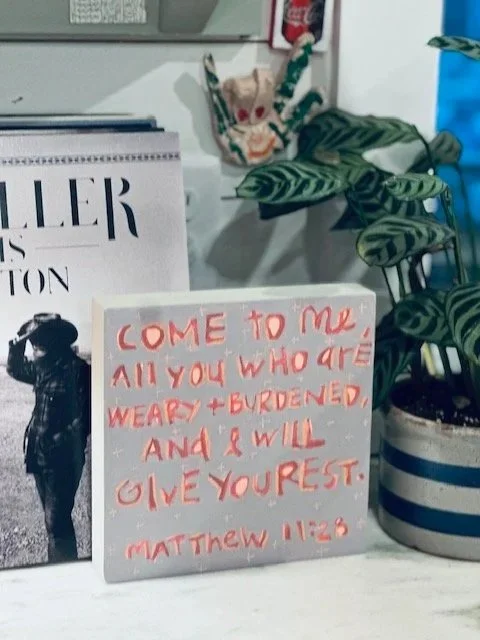 Coca-Cola
LLER
IS
TON
COME TO Me,
All YOU WHO are
WEARY + BURDENED,
AND I WILL
GIVE YOU REST.
MATTHew 11:28